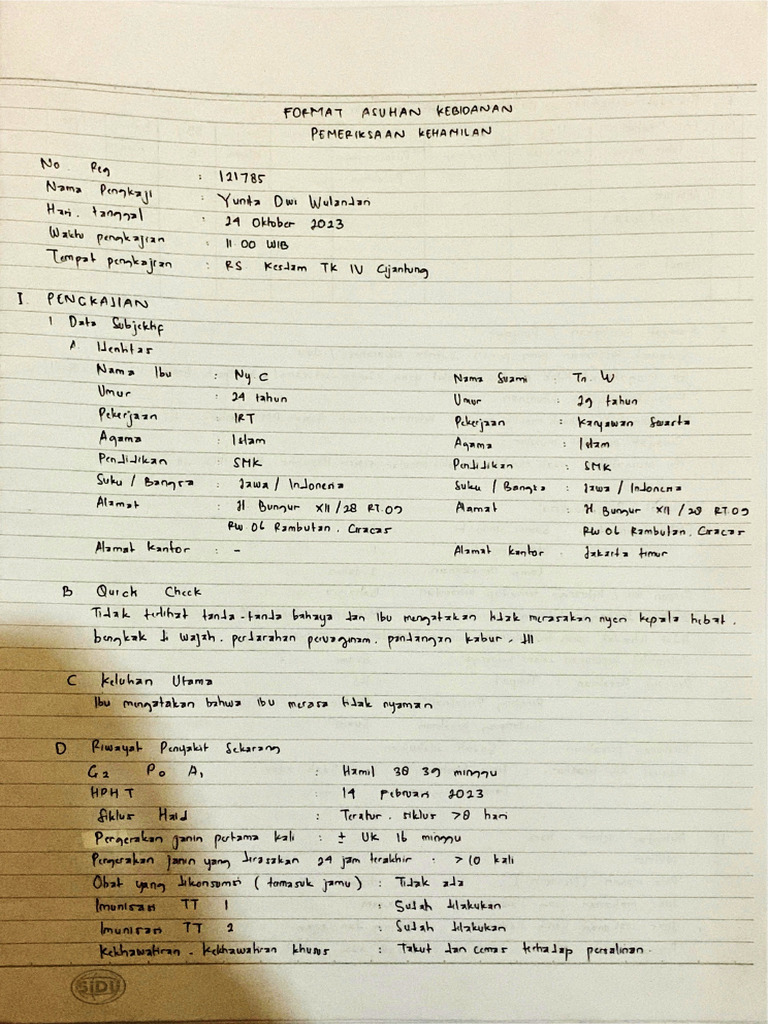 FORMAT ASUHAN KEBIDANAN
PEMERIKSAAN KEHAMILAN
No. Reg : 121785
Nama Pengkaji : Yunita Dwi Wulandari
Hari, tanggal : 24 Oktober 2023
Waktu pengkajian : 11.00 WIB
Tempat pengkajian : RS Kesdam TK IV Cijantung
I. PENGKAJIAN
1 Data Subjektif
A. Identitas
Nama Ibu : Ny. C Nama Suami : Tn. W
Umur : 24 tahun Umur : 29 tahun
Pekerjaan : IRT Pekerjaan : Karyawan Swasta
Agama : Islam Agama : Islam
Pendidikan : SMK Pendidikan : SMK
Suku / Bangsa : Jawa / Indonesia Suku / Bangsa : Jawa / Indonesia
Alamat : Jl. Bungur XII / 28 RT.09 Alamat : Jl. Bungur XII / 28 RT.09
RW 06 Rambutan, Ciracas RW 06 Rambutan, Ciracas
Alamat Kantor : - Alamat Kantor : Jakarta timur
B Quick Check
Tidak terlihat tanda-tanda bahaya dan Ibu mengatakan tidak merasakan nyeri kepala hebat,
bengkak di wajah, perdarahan pervaginam, pandangan kabur, dll
C Keluhan Utama
Ibu mengatakan bahwa ibu merasa tidak nyaman
D Riwayat Penyakit Sekarang
G2 P0 A1 : Hamil 38 39 minggu
HPHT : 14 Februari 2023
Siklus Haid : Teratur, siklus >8 hari
Pergerakan janin pertama kali : ± UK 16 minggu
Pergerakan janin yang dirasakan 24 jam terakhir : >10 kali
Obat yang dikonsumsi (termasuk jamu) : Tidak ada
Imunisasi TT 1 : Sudah dilakukan
Imunisasi TT 2 : Sudah dilakukan
Kekhawatiran - Kekhawatiran khusus : Takut dan cemas terhadap persalinan.
SIDU